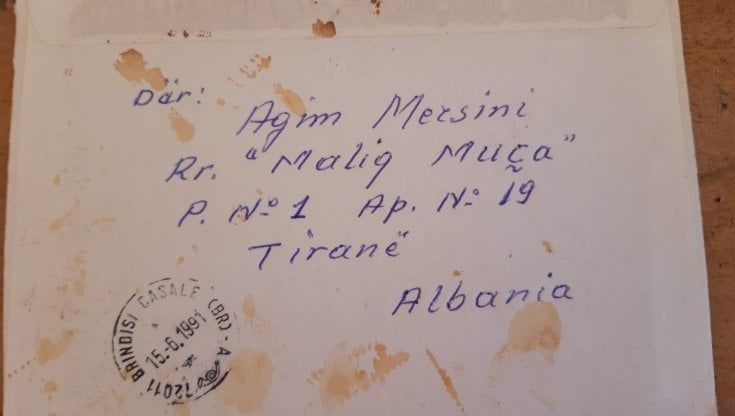 Där:
Agim Mersini
Rr. "Maliq Muça"
P. Nº 1 Ap. Nº 19
Tiranë
Albania
72011 BRINDISI CASALE (BR) - A
15-6.1991